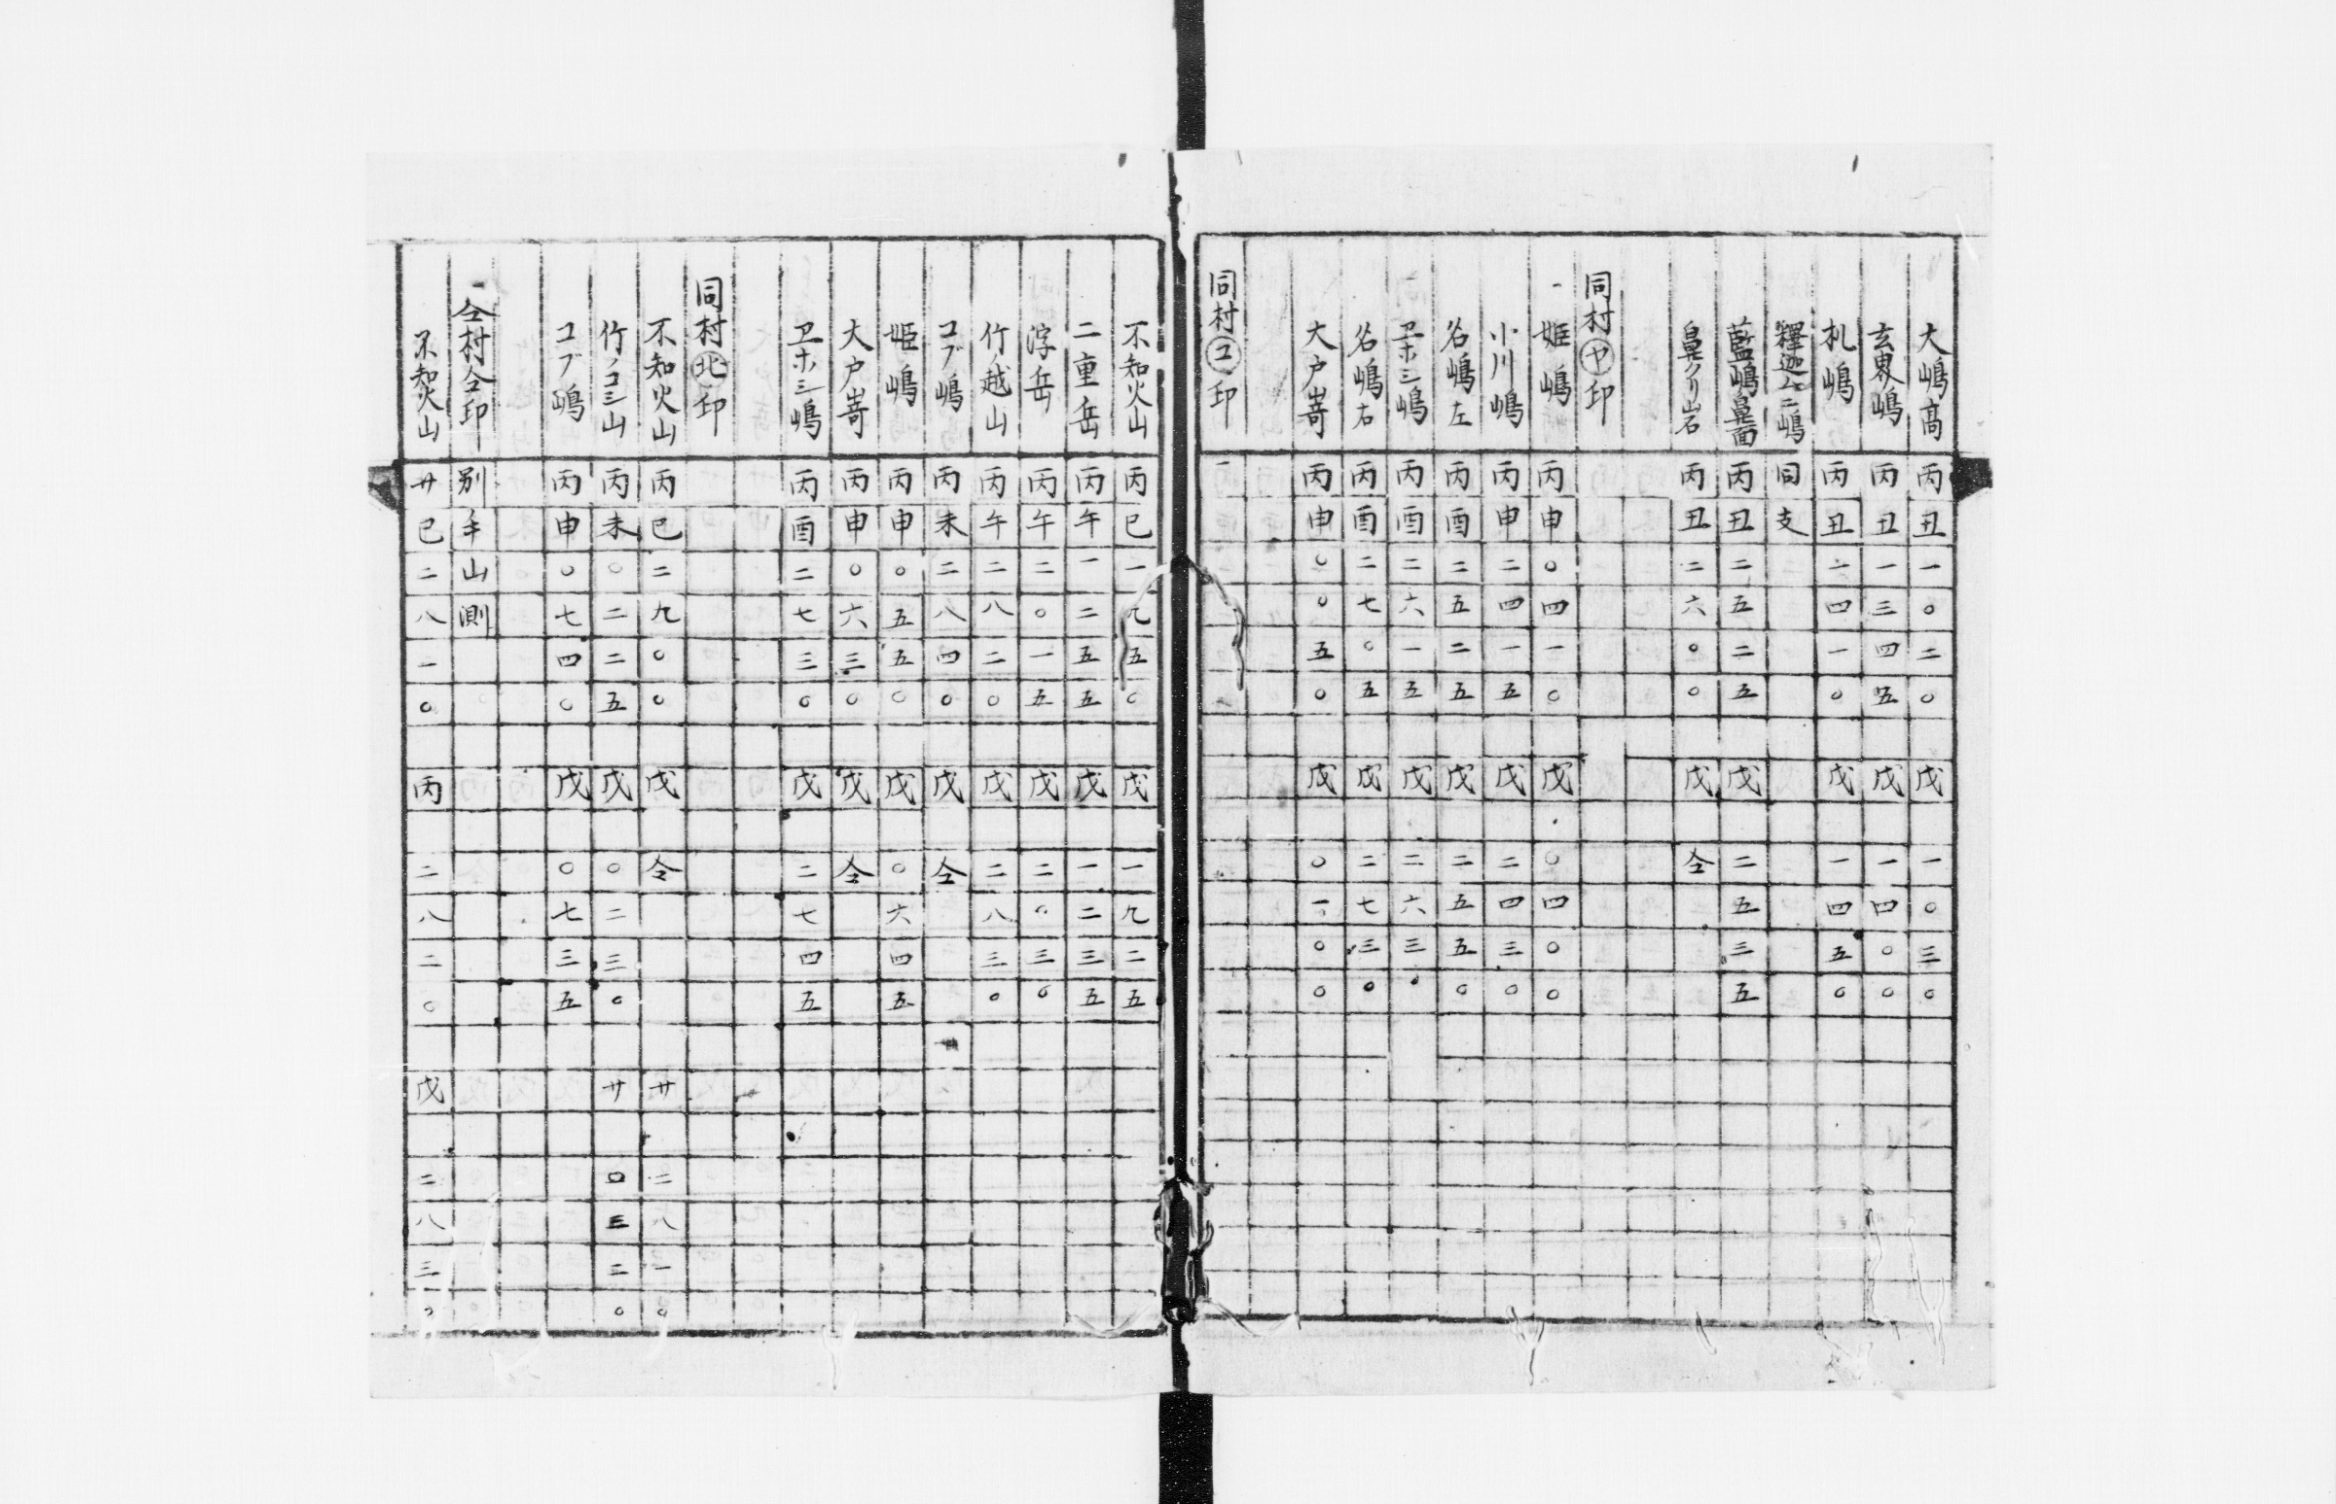 大嶋高 丙丑一〇二〇 戊一〇三〇
玄界嶋 丙丑一三四五 戊一四〇〇
札嶋 丙丑一四一〇 戊一四五〇
釋迦ムニ嶋 同支
藍嶋鼻面 丙丑二五二五 戊二五三五
鼻クリ岩 丙丑二六〇〇 戊仝
同村㋳印
姫嶋 丙申〇四一〇 戊〇四〇〇
小川嶋 丙申二四一五 戊二四三〇
名嶋左 丙酉二五二五 戊二五五〇
ヱホシ嶋 丙酉二六一五 戊二六三〇
名嶋右 丙酉二七〇五 戊二七三〇
大戸嵜 丙申〇〇五〇 戊〇一〇〇
同村㋙印
不知火山 丙巳一九五〇 戊一九二五
二重岳 丙午一二五五 戊一二三五
浮岳 丙午二〇一五 戊二〇三〇
竹ノ越山 丙午二八二〇 戊二八三〇
コブ嶋 丙未二八四〇 戊仝
姫嶋 丙申〇五五〇 戊〇六四五
大戸嵜 丙申〇六三〇 戊仝
ヱホシ嶋 丙酉二七三〇 戊二七四五
同村㊋印
不知火山 丙巳二九〇〇 戊仝 廿二八一〇
竹ノコシ山 丙未〇二二五 戊〇二三〇 廿〇三二〇
コブ嶋 丙申〇七四〇 戊〇七三五
仝村仝印 別手山測
不知火山 廿巳二八一〇 丙二八二〇 戊二八三〇